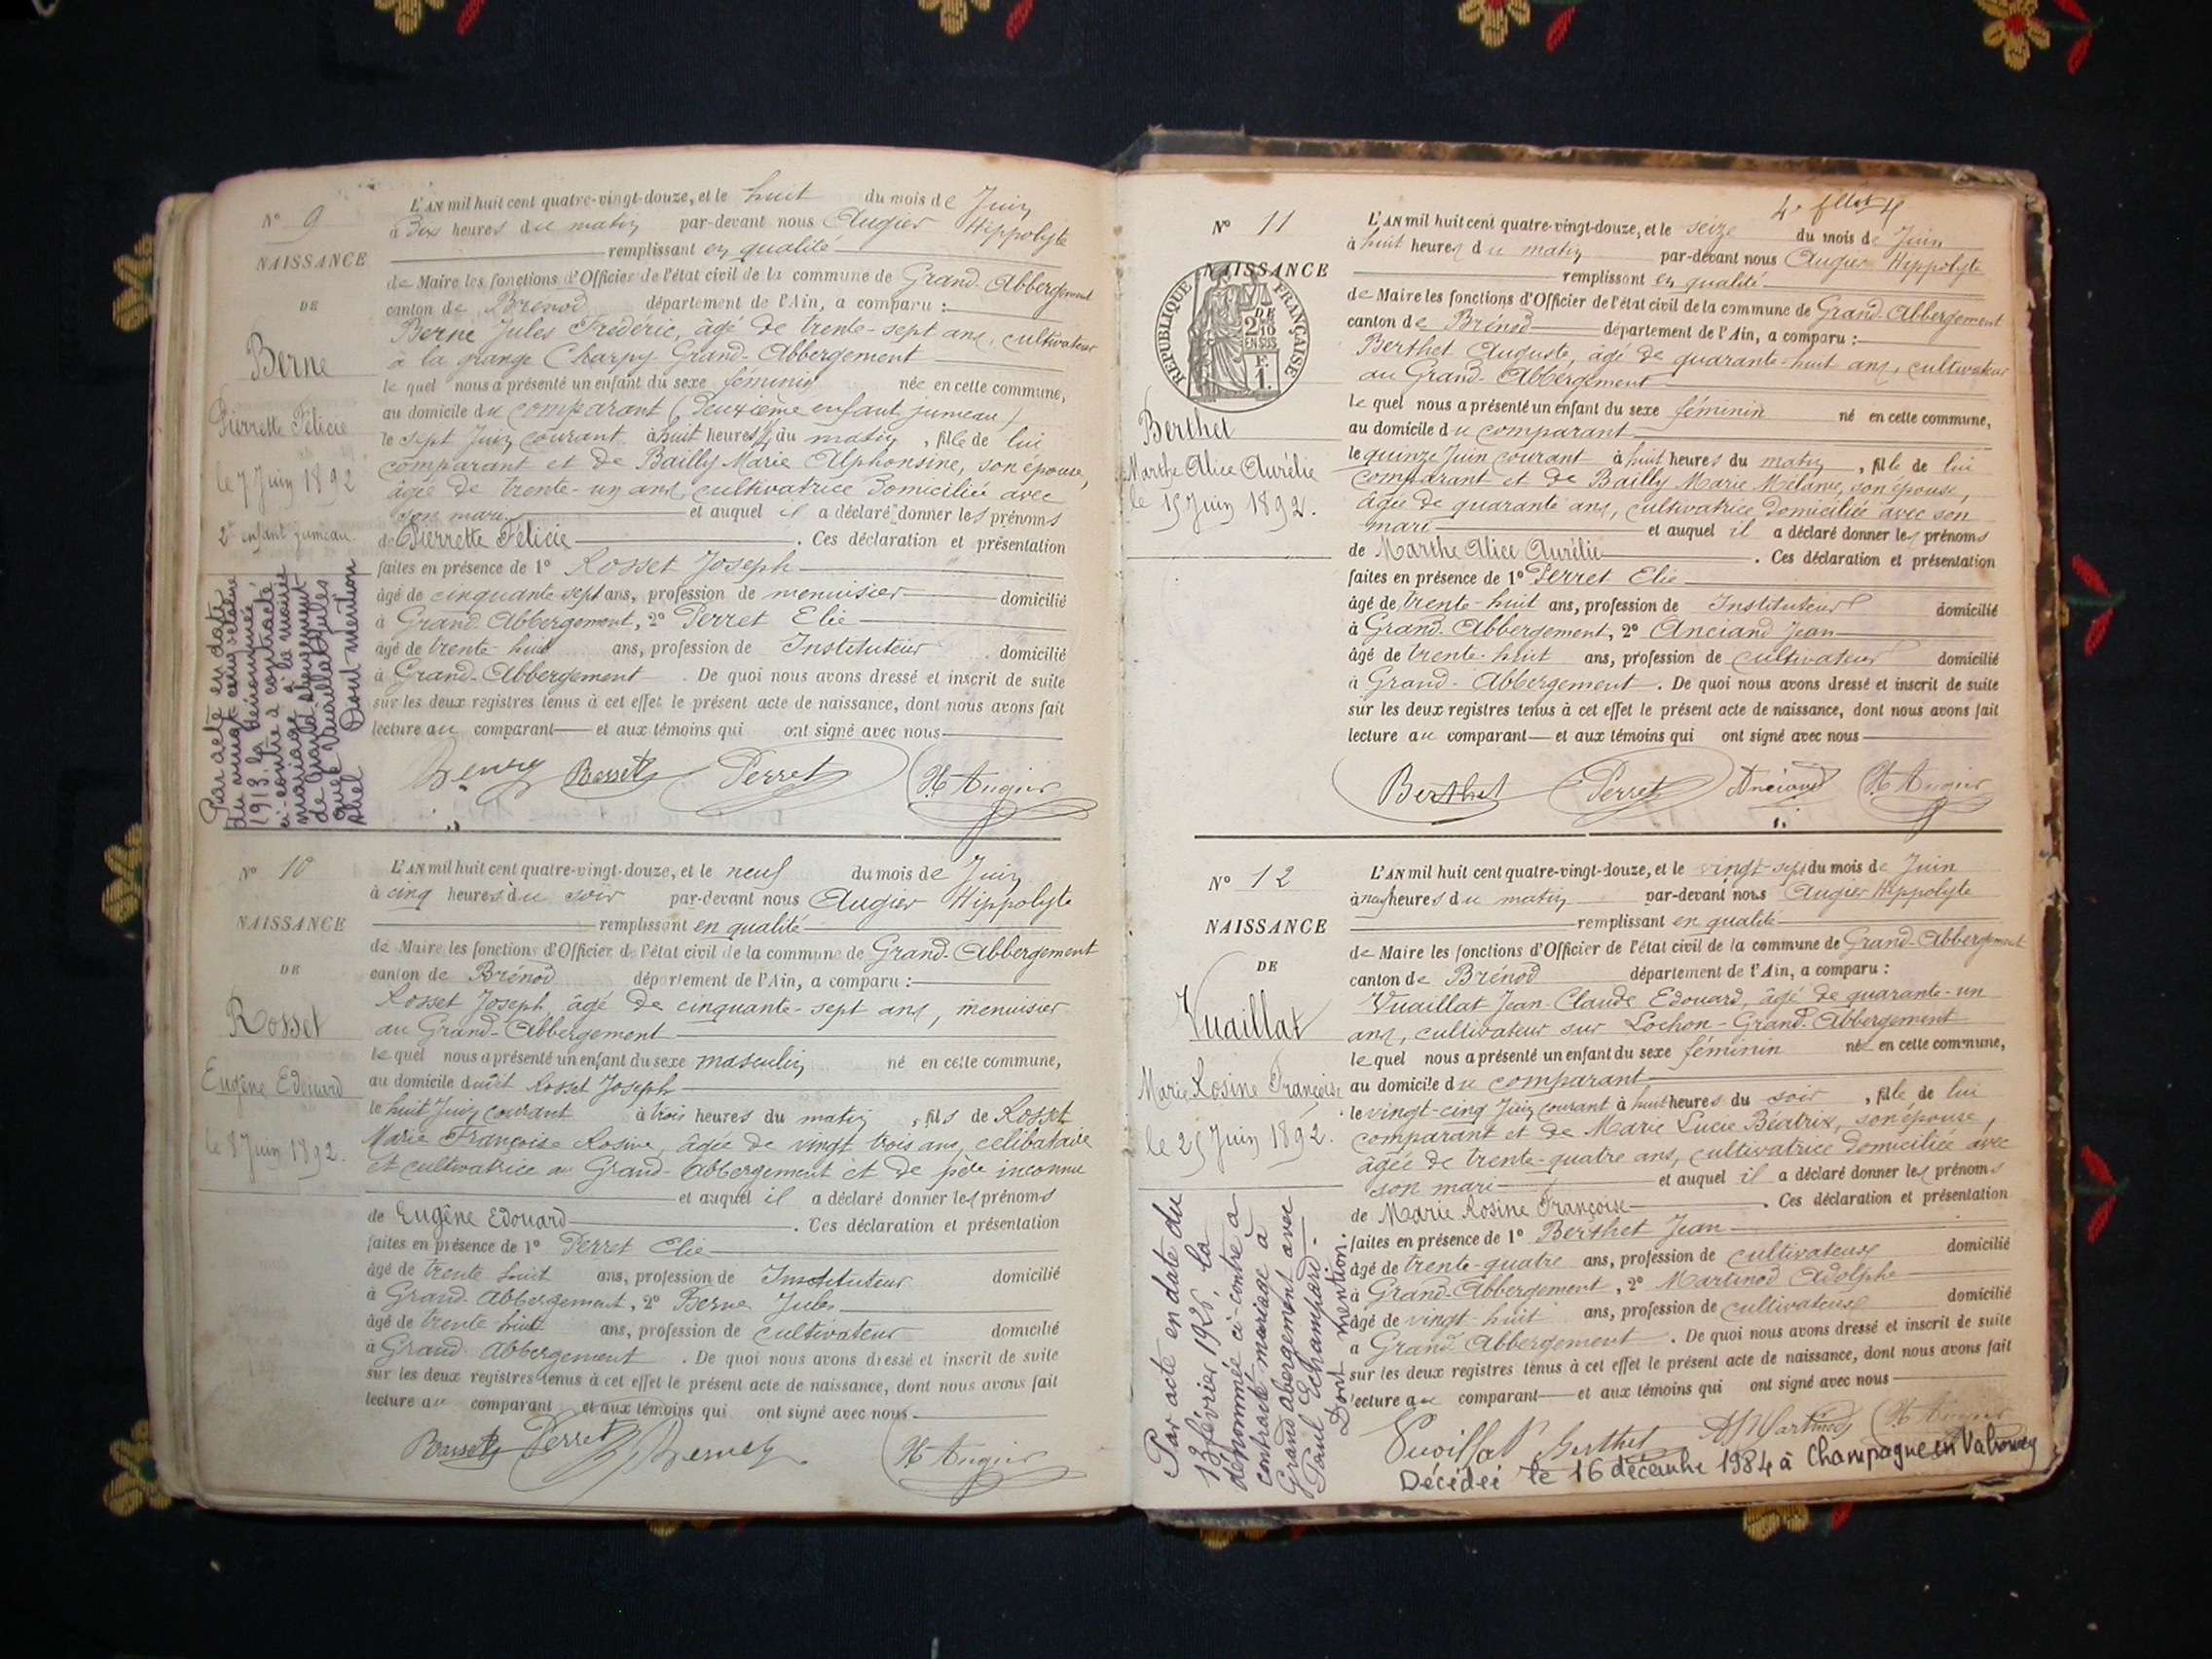 N° 9
NAISSANCE
DE
Berne
Pierrette Félicie
le 7 Juin 1892
2e enfant jumeau
Par acte en date
du vingt cinq octobre
1913, la dénommée
ci-contre a contracté
mariage à la mairie
de Grand Abergement
avec Vuaillat Jules
Dont mention
L'AN mil huit cent quatre-vingt-douze, et le huit du mois de Juin
à Dix heures du matin par-devant nous Augier Hippolyte
remplissant en qualité
de Maire les fonctions d'Officier de l'état civil de la commune de Grand-Abbergement
canton de Brénod département de l'Ain, a comparu :
Berne Jules Frédéric, âgé de trente-sept ans, cultivateur
à la grange Charpy Grand-Abbergement
le quel nous a présenté un enfant du sexe féminin née en cette commune,
au domicile du comparant (deuxième enfant jumeau)
le sept Juin courant à huit heures du matin, fille de lui
comparant et de Bailly Marie Alphonsine, son épouse,
âgée de trente-un ans, cultivatrice domiciliée avec
son mari et auquel il a déclaré donner les prénoms
de Pierrette Félicie. Ces déclaration et présentation
faites en présence de 1° Rosset Joseph
âgé de cinquante sept ans, profession de menuisier domicilié
à Grand-Abbergement, 2° Perret Elie
âgé de trente huit ans, profession de Instituteur domicilié
à Grand-Abbergement. De quoi nous avons dressé et inscrit de suite
sur les deux registres tenus à cet effet le présent acte de naissance, dont nous avons fait
lecture au comparant et aux témoins qui ont signé avec nous
Rosset Perret H. Augier
N° 10
NAISSANCE
DE
Rosset
Eugène Edouard
le 8 Juin 1892.
L'AN mil huit cent quatre-vingt-douze, et le neuf du mois de Juin
à cinq heures du soir par-devant nous Augier Hippolyte
remplissant en qualité
de Maire les fonctions d'Officier de l'état civil de la commune de Grand-Abbergement
canton de Brénod département de l'Ain, a comparu :
Rosset Joseph âgé de cinquante-sept ans, menuisier
au Grand-Abbergement
le quel nous a présenté un enfant du sexe masculin né en cette commune,
au domicile dudit Rosset Joseph
le huit Juin courant à trois heures du matin, fils de Rosset
Marie Françoise Rosine, âgée de vingt trois ans, célibataire
et cultivatrice au Grand-Abbergement et de père inconnu
et auquel il a déclaré donner les prénoms
de Eugène Edouard. Ces déclaration et présentation
faites en présence de 1° Perret Elie
âgé de trente huit ans, profession de Instituteur domicilié
à Grand-Abbergement, 2° Berne Jules
âgé de trente huit ans, profession de cultivateur domicilié
à Grand Abbergement. De quoi nous avons dressé et inscrit de suite
sur les deux registres tenus à cet effet le présent acte de naissance, dont nous avons fait
lecture au comparant et aux témoins qui ont signé avec nous
Rosset Perret H. Augier
N° 11
NAISSANCE
DE
RÉPUBLIQUE FRANÇAISE
EN SUS
F. 1.
Berthet
Marthe Alice Aurélie
le 15 Juin 1892.
L'AN mil huit cent quatre-vingt-douze, et le seize du mois de Juin
à huit heures du matin par-devant nous Augier Hippolyte
remplissant en qualité
de Maire les fonctions d'Officier de l'état civil de la commune de Grand-Abbergement
canton de Brénod département de l'Ain, a comparu :
Berthet Auguste, âgé de quarante-huit ans, cultivateur
au Grand-Abbergement
le quel nous a présenté un enfant du sexe féminin né en cette commune,
au domicile du comparant
le quinze Juin courant à huit heures du matin, fille de lui
comparant et de Bailly Marie Mélanie, son épouse,
âgée de quarante ans, cultivatrice domiciliée avec son
mari et auquel il a déclaré donner les prénoms
de Marthe Alice Aurélie. Ces déclaration et présentation
faites en présence de 1° Perret Elie
âgé de trente-huit ans, profession de Instituteur domicilié
à Grand-Abbergement, 2° Anciand Jean
âgé de trente-huit ans, profession de cultivateur domicilié
à Grand-Abbergement. De quoi nous avons dressé et inscrit de suite
sur les deux registres tenus à cet effet le présent acte de naissance, dont nous avons fait
lecture au comparant et aux témoins qui ont signé avec nous
Berthet Perret Anciand H. Augier
N° 12
NAISSANCE
DE
Vuaillat
Marie Rosine Françoise
le 25 Juin 1892.
Par acte en date du
13 février 1926, la
dénommée ci-contre a
contracté mariage à
Grand Abergement avec
Paul Echampard
Dont mention.
L'AN mil huit cent quatre-vingt-douze, et le vingt-sept du mois de Juin
à neuf heures du matin par-devant nous Augier Hippolyte
remplissant en qualité
de Maire les fonctions d'Officier de l'état civil de la commune de Grand-Abbergement
canton de Brénod département de l'Ain, a comparu :
Vuaillat Jean-Claude Edouard, âgé de quarante-un
ans, cultivateur sur Lochon-Grand-Abbergement
le quel nous a présenté un enfant du sexe féminin né en cette commune,
au domicile du comparant
le vingt-cinq Juin courant à huit heures du soir, fille de lui
comparant et de Marie Lucie Béatrix, son épouse,
âgée de trente-quatre ans, cultivatrice domiciliée avec
son mari et auquel il a déclaré donner les prénoms
de Marie Rosine Françoise. Ces déclaration et présentation
faites en présence de 1° Berthet Jean
âgé de trente-quatre ans, profession de cultivateur domicilié
à Grand-Abbergement, 2° Martinod Adolphe
âgé de vingt-huit ans, profession de cultivateur domicilié
à Grand Abbergement. De quoi nous avons dressé et inscrit de suite
sur les deux registres tenus à cet effet le présent acte de naissance, dont nous avons fait
lecture au comparant et aux témoins qui ont signé avec nous
Vuaillat Berthet A Martinod H. Augier
Décédée le 16 décembre 1984 à Champagne en Valromey